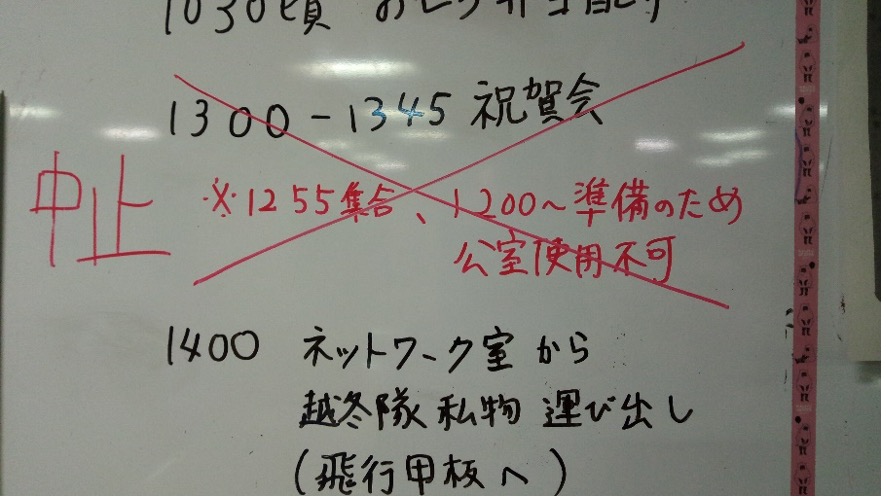 1030頃 おにぎり弁当配り
1300-1345 祝賀会
中止
※1255集合、1200〜準備のため
公室使用不可
1400 ネットワーク室から
越冬隊私物 運び出し
(飛行甲板へ)